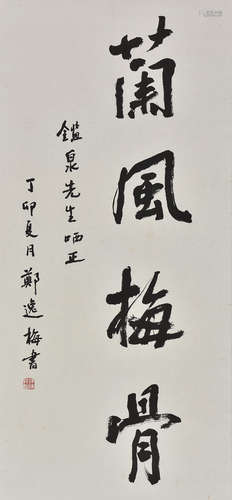 蘭風梅骨
鑑泉先生哂正
丁卯夏月鄭逸梅書